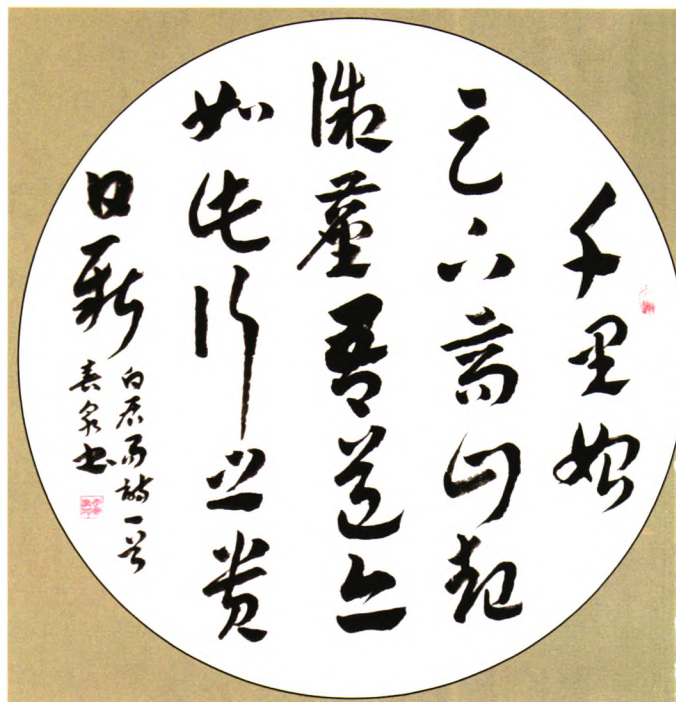 千里始
足下高山起
微塵吾道亦
如此行之貴
日新
白居易詩一首
泉书